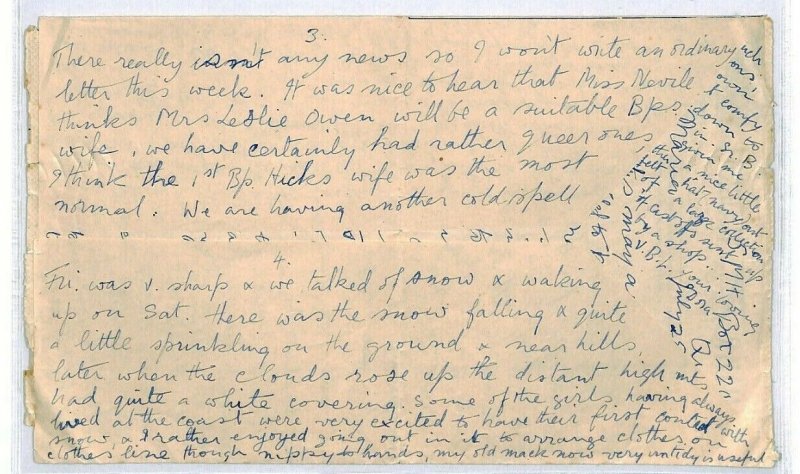 3.
There really isn't any news so I won't write an ordinary
letter this week. It was nice to hear that Miss Nevile
thinks Mrs Leslie Owen will be a suitable Bps
wife, we have certainly had rather queer ones
I think the 1st Bp Hicks wife was the most
normal. We are having another cold spell
4.
Fri. was v. sharp & we talked of snow & waking
up on Sat. there was the snow falling & quite
a little sprinkling on the ground & near hills,
later when the clouds rose up the distant high mts
had quite a white covering. Some of the girls having always
lived at the coast were very excited to have their first contact with
snow, & I rather enjoyed going out in it to arrange clothes on
clothes line though nippy to hands, my old mack now very untidy is useful
& comfy
down to B.
given me
a nice little
felt hat (navy) out
of a large collection
of cast offs sent up
by a shop.
your loving
Dora
Box 22
July 25